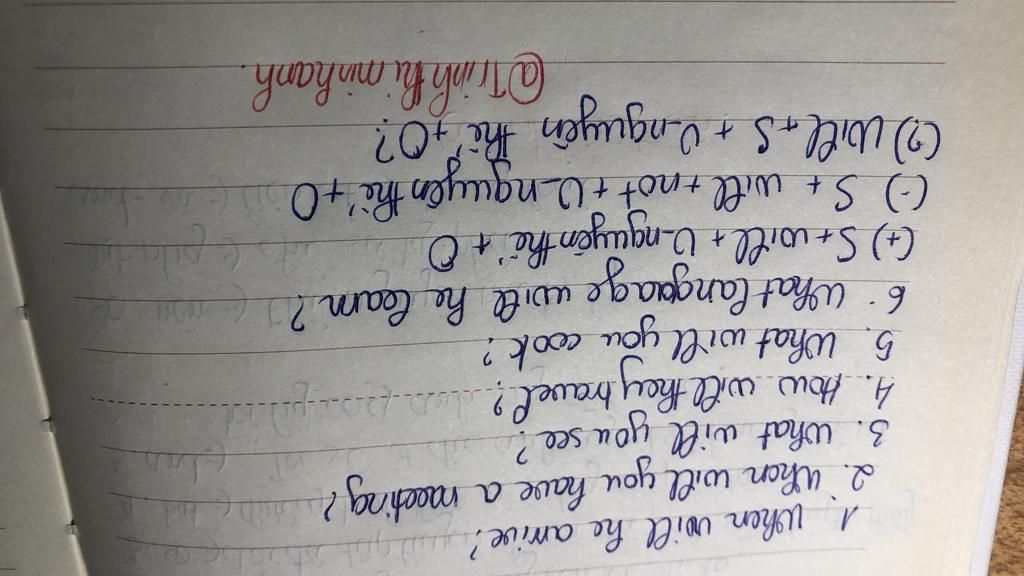 1. When will he arrive?
2. When will you have a meeting?
3. What will you see?
4. How will they travel?
5. What will you cook?
6. What language will he learn?
(+) S + will + V_nguyên thể + O
(-) S + will + not + V_nguyên thể + O
(?) Will + S + V_nguyên thể + O?
@Trinh thi minhanh.